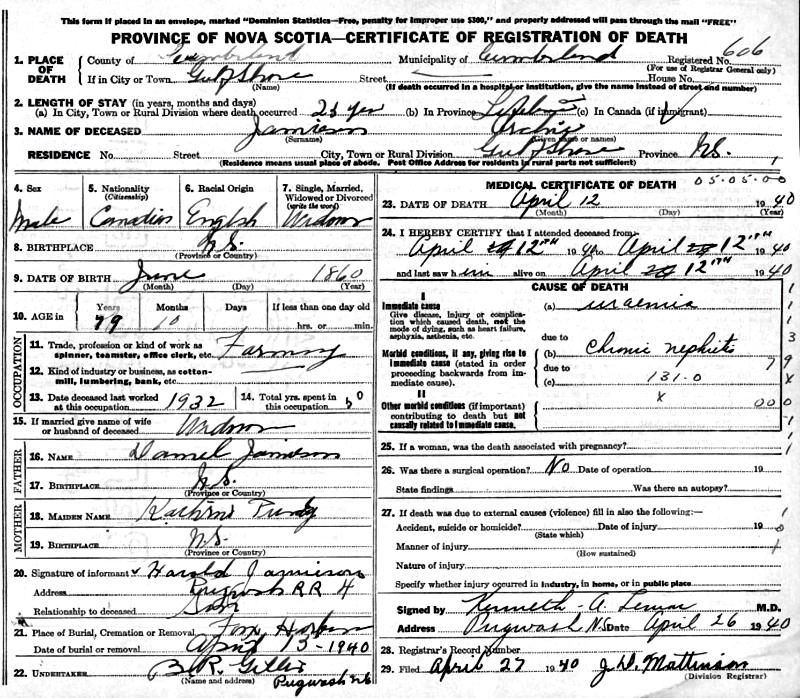 This form if placed in an envelope, marked "Dominion Statistics—Free, penalty for improper use $300," and properly addressed will pass through the mail "FREE"
PROVINCE OF NOVA SCOTIA—CERTIFICATE OF REGISTRATION OF DEATH
1. PLACE OF DEATH County of Cumberland Municipality of Cumberland Registered No. 606
(For use of Registrar General only)
If in City or Town Gulf Shore Street House No.
(Name) (If death occurred in a hospital or institution, give the name instead of street and number)
2. LENGTH OF STAY (in years, months and days)
(a) In City, Town or Rural Division where death occurred 25 yrs (b) In Province (c) In Canada (if immigrant)
3. NAME OF DECEASED Jamieson Archie
(Surname) (Given name or names)
RESIDENCE No. Street City, Town or Rural Division Gulf Shore Province N.S.
(Residence means usual place of abode. Post Office Address for residents in rural parts not sufficient)
4. Sex Male
5. Nationality (Citizenship) Canadian
6. Racial Origin English
7. Single, Married, Widowed or Divorced (write the word) Widower
8. BIRTHPLACE N.S.
(Province or Country)
9. DATE OF BIRTH June 1860
(Month) (Day) (Year)
10. AGE in Years Months Days If less than one day old
79 10 hrs. or min.
OCCUPATION
11. Trade, profession or kind of work as spinner, teamster, office clerk, etc. Farming
12. Kind of industry or business, as cotton-mill, lumbering, bank, etc.
13. Date deceased last worked at this occupation 1932 14. Total yrs. spent in this occupation 50
15. If married give name of wife or husband of deceased Widower
FATHER
16. NAME Daniel Jamieson
17. BIRTHPLACE N.S.
(Province or Country)
MOTHER
18. MAIDEN NAME Purdy
19. BIRTHPLACE N.S.
(Province or Country)
20. Signature of informant Harold Jamieson
Address Pugwash RR 4
Relationship to deceased Son
21. Place of Burial, Cremation or Removal Fox Harbor
Date of burial or removal April 15-1940
22. UNDERTAKER B.R.
(Name and address) Pugwash NS
MEDICAL CERTIFICATE OF DEATH 05.05.00
23. DATE OF DEATH April 12 1940
(Month) (Day) (Year)
24. I HEREBY CERTIFY that I attended deceased from:
April 12TH 1940 to April 12TH 1940
and last saw him alive on April 12TH 1940
CAUSE OF DEATH
I
Immediate cause
Give disease, injury or complication which caused death, not the mode of dying, such as heart failure, asphyxia, asthenia, etc.
(a) uraemia
due to
Morbid conditions, if any, giving rise to immediate cause (stated in order proceeding backwards from immediate cause).
(b) Chronic nephritis 79
due to
(c) 131.0 x
II
Other morbid conditions (if important) contributing to death but not causally related to immediate cause.
x 000
25. If a woman, was the death associated with pregnancy?
26. Was there a surgical operation? No Date of operation 19
State findings Was there an autopsy?
27. If death was due to external causes (violence) fill in also the following:—
Accident, suicide or homicide? Date of injury 19
(State which)
Manner of injury
(How sustained)
Nature of injury
Specify whether injury occurred in industry, in home, or in public place
Signed by Kenneth A. M.D.
Address Pugwash NS Date April 26 1940
28. Registrar's Record Number
29. Filed April 27 1940 J.D. Mattinson
(Division Registrar)